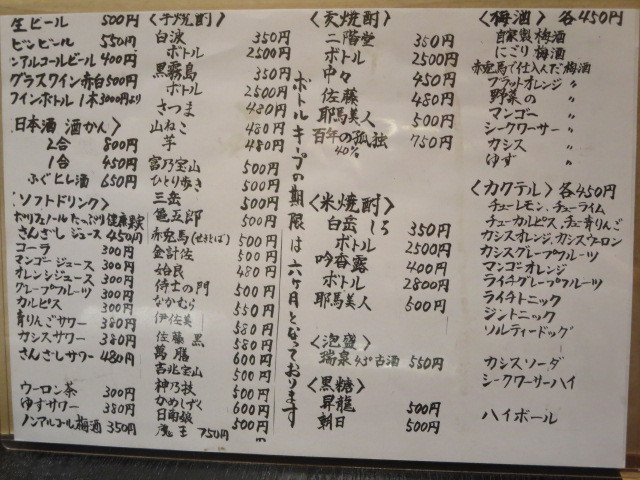 生ビール 500円
ビンビール 550円
ンアルコールビール 400円
グラスワイン赤白 500円
ワインボトル 1本3000円より
日本酒 酒かん〉
2合 800円
1合 450円
ふぐヒレ酒 650円
ソフトドリンク〉
ポリフェノールたっぷり健康果実
さんざしジュース 450円
コーラ 300円
マンゴージュース 300円
オレンジジュース 300円
グレープフルーツ 300円
カルピス 300円
青りんごサワー 380円
カシスサワー 380円
さんざしサワー 480円
ウーロン茶 300円
ゆずサワー 380円
ノンアルコール梅酒 350円
〈芋焼酎〉
白波 350円
ボトル 2500円
黒霧島 350円
ボトル 2500円
さつま 480円
山ねこ 480円
芋 480円
富乃宝山 500円
ひとり歩き 500円
三岳 500円
亀五郎 500円
赤兎馬(せきとば) 500円
金計佐 500円
姶良 480円
侍士の門 500円
なかむら 550円
伊佐美 550円
佐藤 黒 580円
萬膳 600円
吉兆宝山 500円
神乃技 500円
かめしずく 600円
日南娘 500円
魔王 750円
ボトルキープの期限は六ヶ月となっております
〈麦焼酎〉
二階堂 350円
ボトル 2500円
中々 450円
佐藤 480円
耶馬美人 500円
百年の孤独 750円
40%
〈米焼酎〉
白岳 しろ 350円
ボトル 2500円
吟香露 400円
ボトル 2800円
耶馬美人 500円
〈泡盛〉
瑞泉 43° 古酒 550円
〈黒糖〉
昇龍 500円
朝日 500円
〈梅酒〉各450円
自家製 梅酒
にごり 梅酒
赤兎馬で仕入んだ梅酒
ブラッドオレンジ 〃
野菜の 〃
マンゴー 〃
シークワーサー 〃
カシス 〃
ゆず 〃
〈カクテル〉各450円
チューレモン、チューライム
チューカルピス、チュー青りんご
カシスオレンジ、カシスウーロン
カシスグレープフルーツ
マンゴオレンジ
ライチグレープフルーツ
ライチトニック
ジントニック
ソルティードッグ
カシスソーダ
シークワーサーハイ
ハイボール